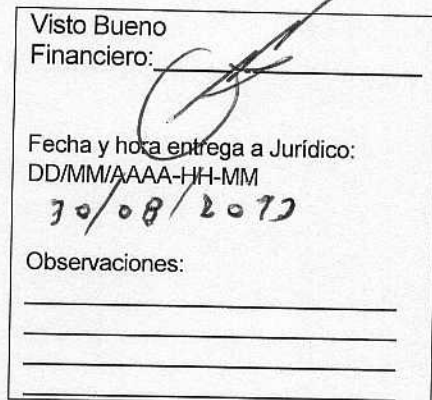 Visto Bueno
Financiero:
Fecha y hora entrega a Jurídico:
DD/MM/AAAA-HH-MM
30/08/
Observaciones: